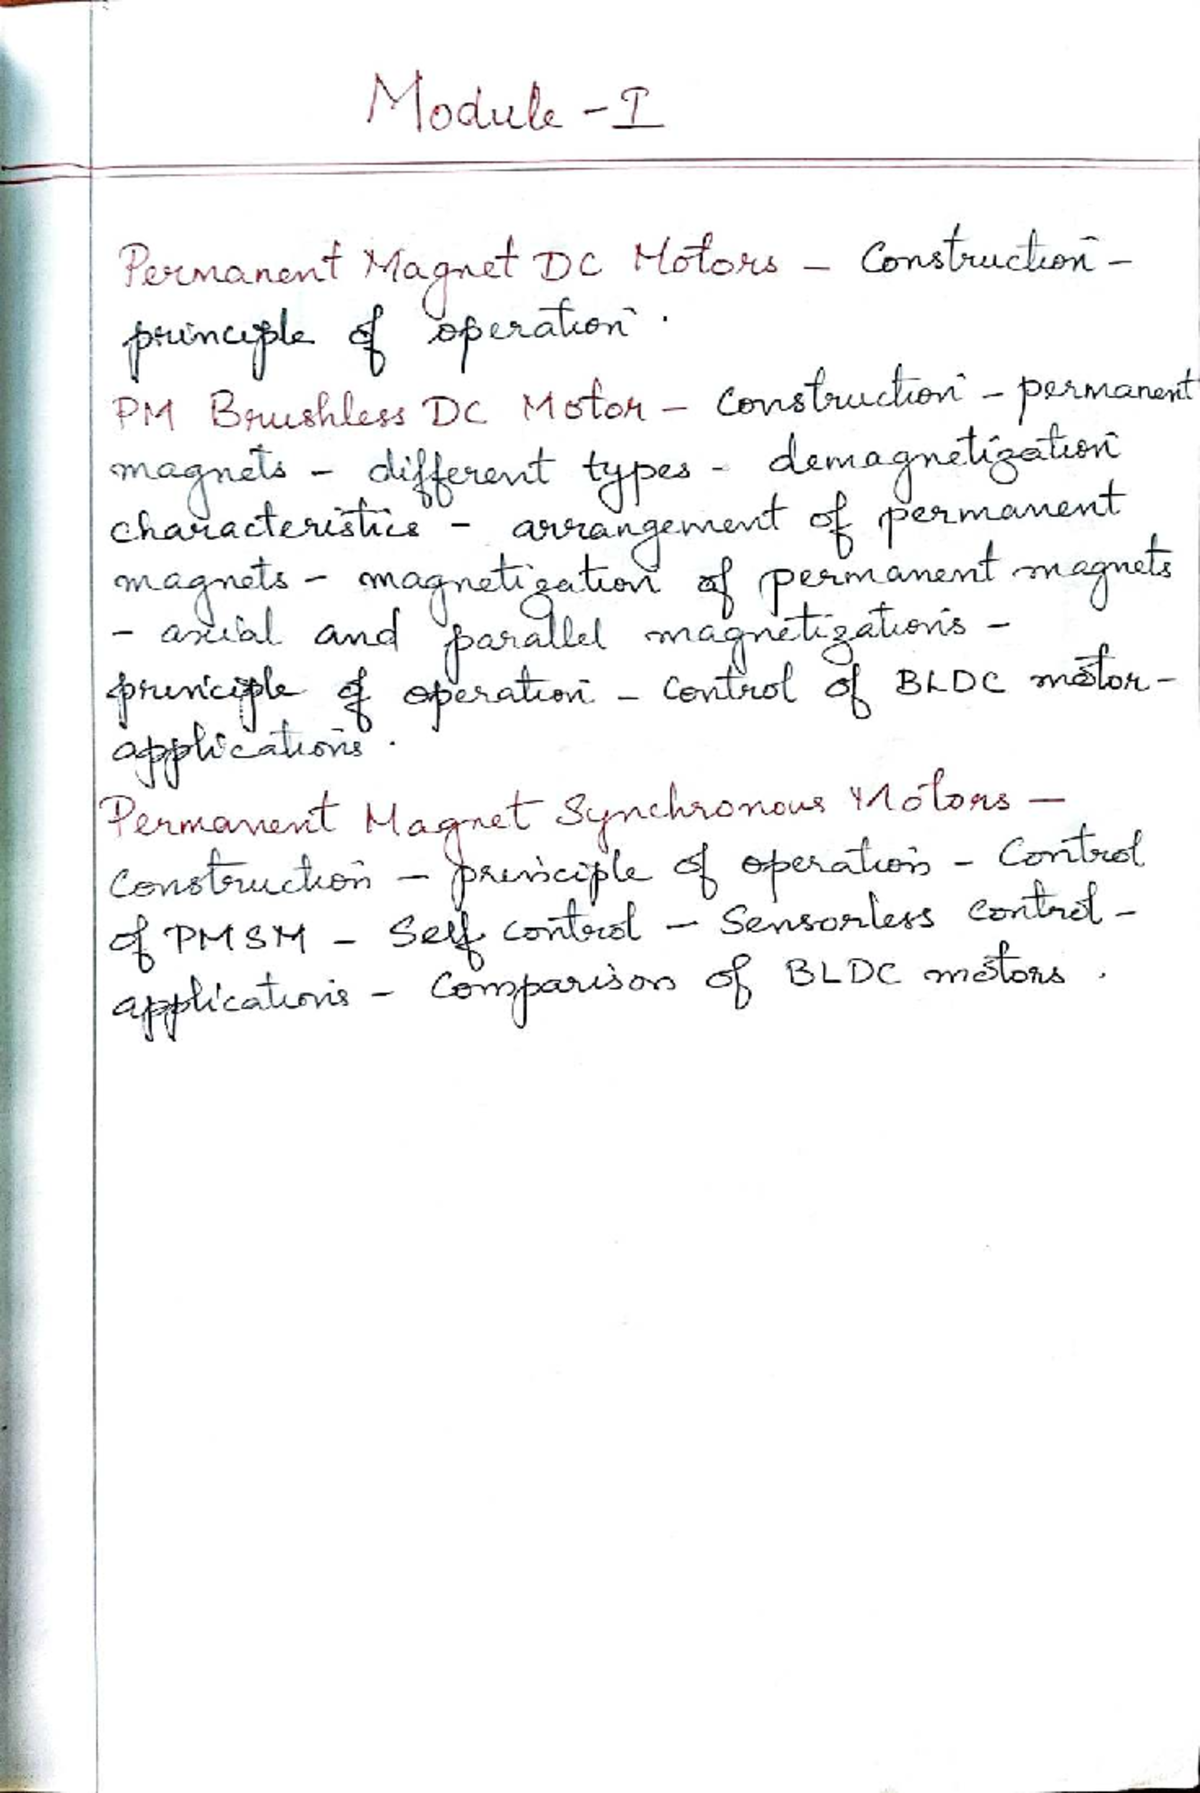 Module - I
Permanent Magnet DC Motors - Construction -
principle of operation.
PM Brushless DC Motor - Construction - permanent
magnets - different types - demagnetization
characteristics - arrangement of permanent
magnets - magnetization of permanent magnets
- axial and parallel magnetizations -
principle of operation - Control of BLDC motor -
applications.
Permanent Magnet Synchronous Motors -
Construction - principle of operation - Control
of PMSM - Self control - Sensorless control -
applications - Comparison of BLDC motors.